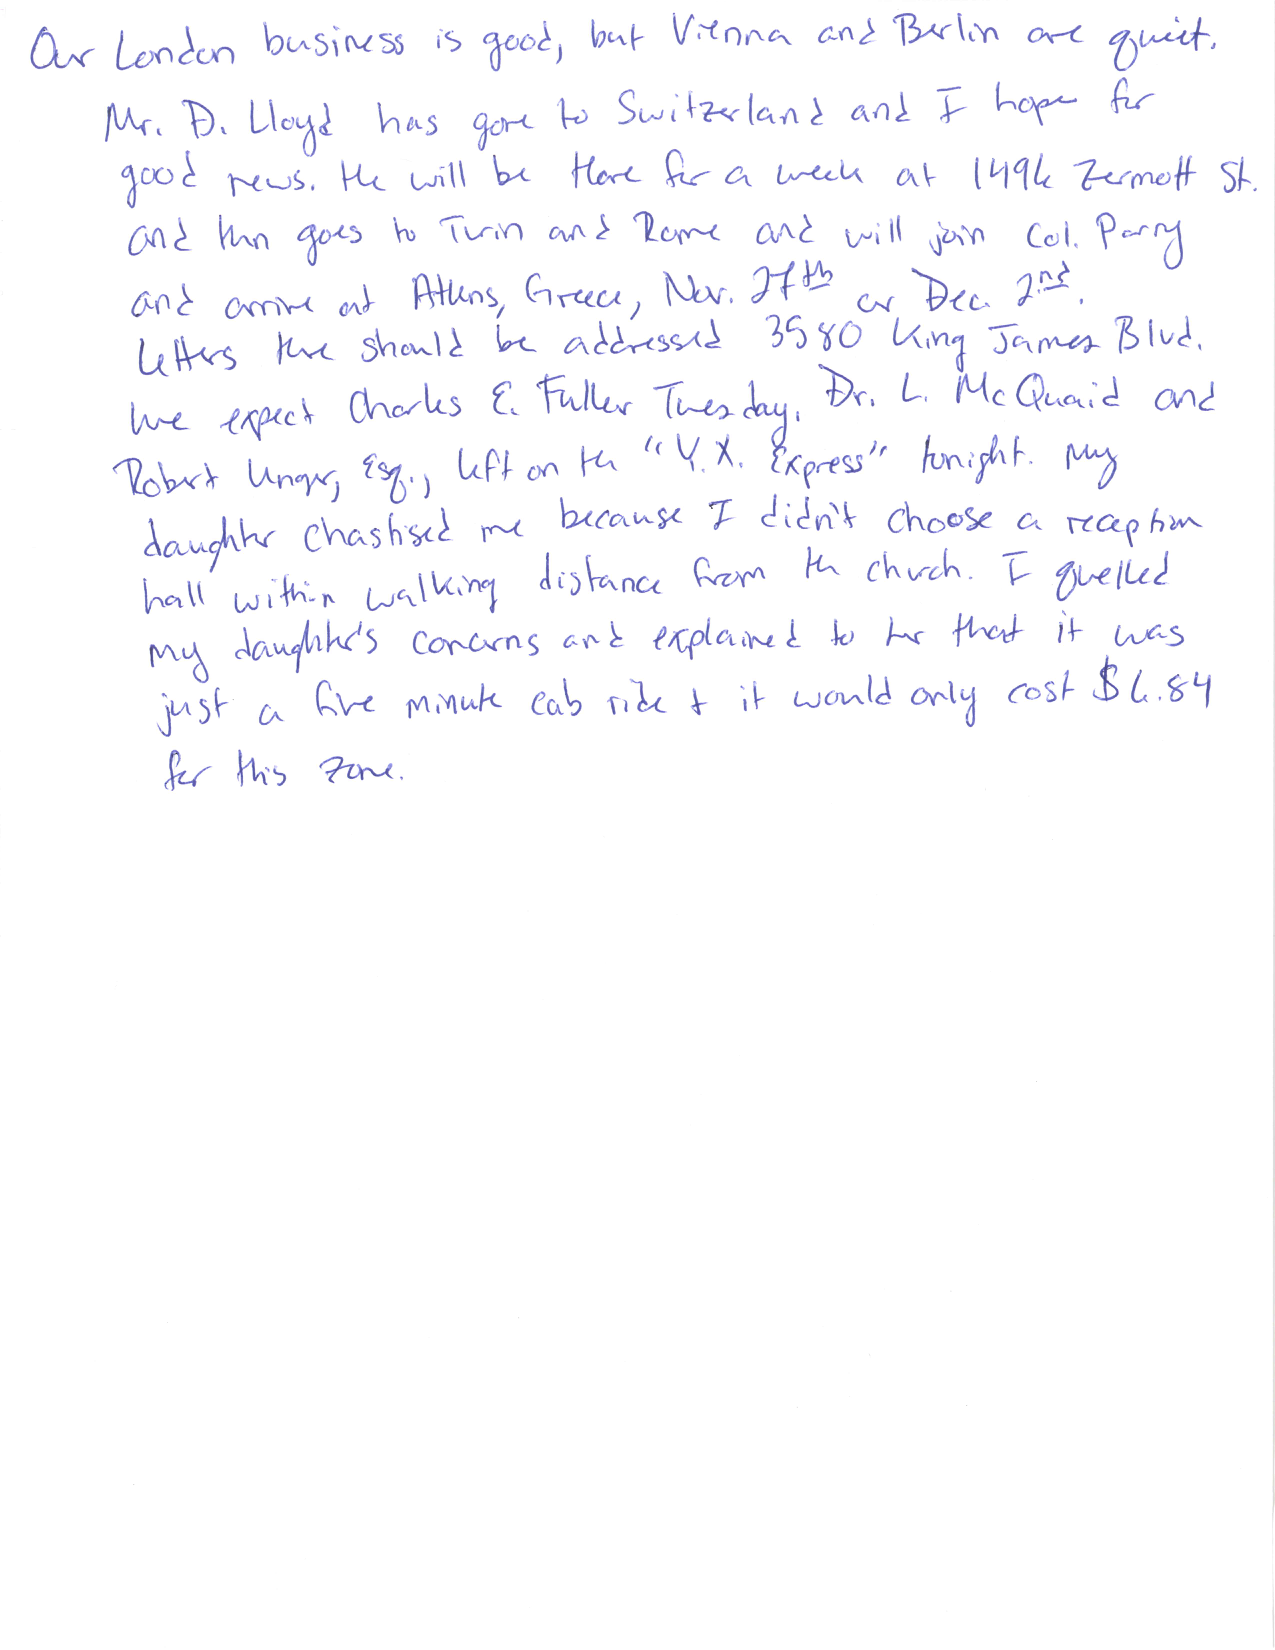 Our London business is good, but Vienna and Berlin are quiet.
Mr. D. Lloyd has gone to Switzerland and I hope for
good news. He will be there for a week at 1496 Zermott St.
and then goes to Turin and Rome and will join Col. Parry
and arrive at Athens, Greece, Nov. 27th or Dec. 2nd.
Letters there should be addressed 3580 King James Blvd.
We expect Charles E. Fuller Tuesday. Dr. L. McQuaid and
Robert Unger, Esq., left on the "Y.X. Express" tonight. My
daughter chastised me because I didn't choose a reception
hall within walking distance from the church. I quelled
my daughter's concerns and explained to her that it was
just a five minute cab ride + it would only cost $6.84
for this zone.